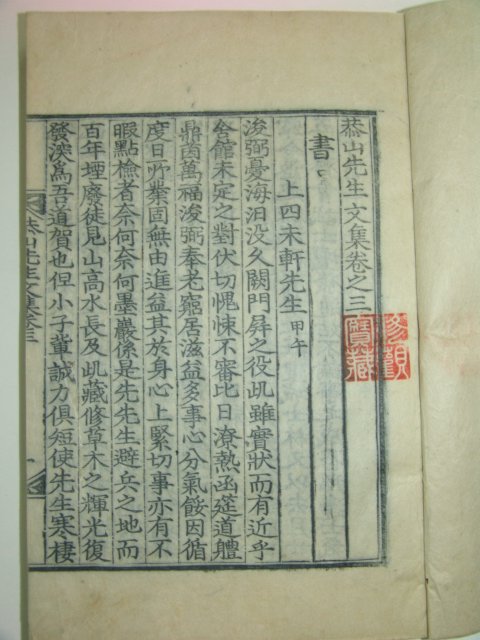 恭山先生文集卷之三
書
上四未軒先生 甲午
浚弼憂海汨没久闕門屛之役此雖實狀而有近乎
舍館未定之對伏切愧悚不審比日潦熱函筵道體
鼎茵萬福浚弼奉老窮居滋益多事心分氣餒因循
度日所業固無由進益其於身心上緊切事亦有不
暇點檢者奈何奈何墨巖係是先先生避兵之地而
百年堙廢徒見山高水長及此藏修草木之輝光復
發深爲吾道賀也但小子輩誠力俱短使先生寒棲
恭山先生文集卷三
一
寶藏